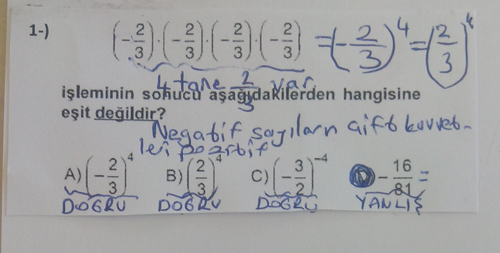 1-) (-2/3)·(-2/3)·(-2/3)·(-2/3) = (-2/3)^4 = (2/3)^4
4 tane 2/3 var.
işleminin sonucu aşağıdakilerden hangisine
eşit değildir?
Negatif sayıların çift kuvvet-
leri pozitif
A) (-2/3)^4 B) (2/3)^4 C) (-3/2)^-4 D) -16/81 =
DOĞRU DOĞRU DOĞRU YANLIŞ